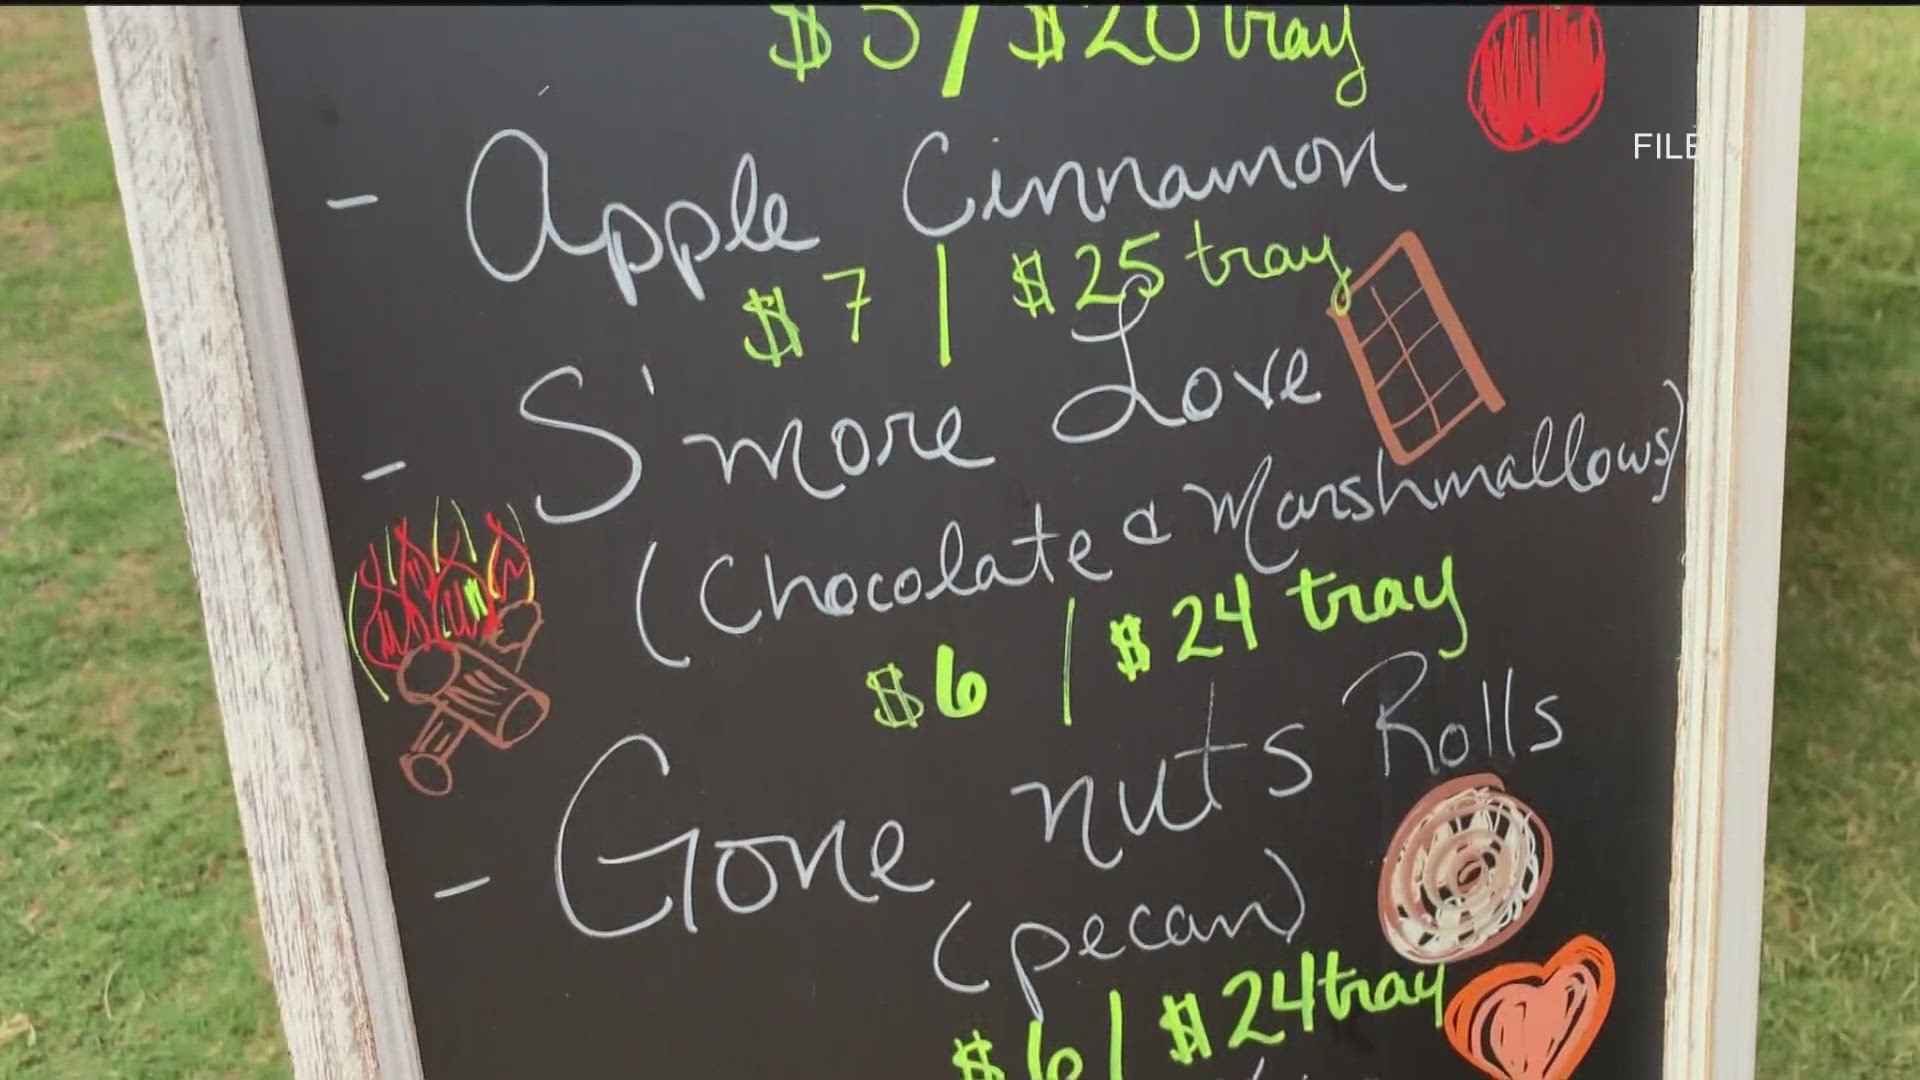 $5 / $20 tray
FILE
- Apple Cinnamon
$7 | $25 tray
- S'more Love
(Chocolate & Marshmallows)
$6 | $24 tray
- Gone nuts Rolls
(pecan)
$6 | $24 tray